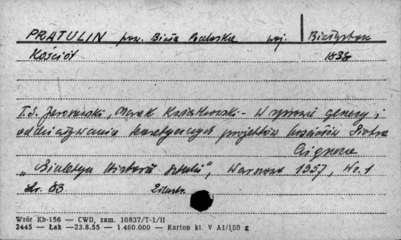 PRATULIN pow. Biała Podlaska woj. Białystok
Kościół 1838
T.S. Jaroszewski, Marek Kwiatkowski - W sprawie genezy i
oddziaływania konkursowych projektów kościołów Piotra
Aignera
„Biuletyn Historii Sztuki", Warszawa 1957, No. 1
str. 83 Ilustr.
Wzór Kb-156 — CWD, zam. 10837/T-1/II
2445 — Łak — 23.8.55 — 1.400.000 — Karton kl. V A1/180 g